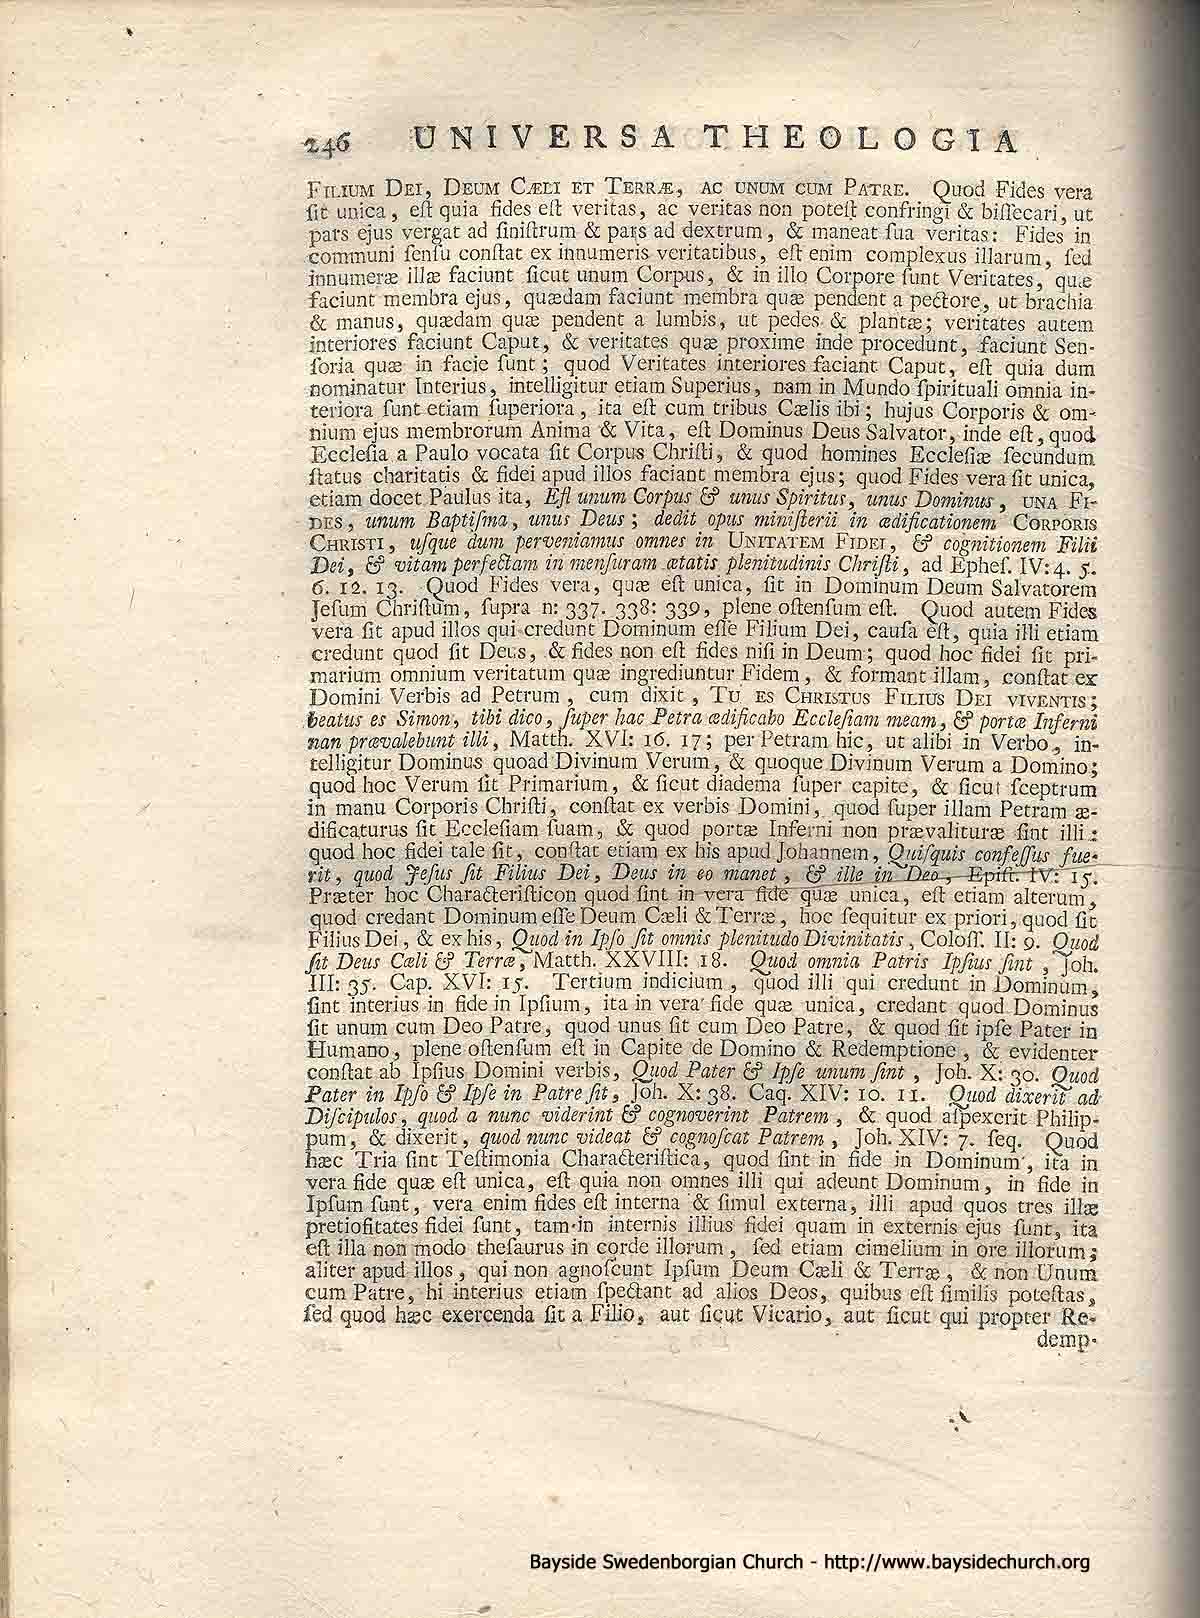 246 UNIVERSA THEOLOGIA
FILIUM DEI, DEUM CÆLI ET TERRÆ, AC UNUM CUM PATRE. Quod Fides vera
ſit unica, eſt quia fides eſt veritas, ac veritas non poteſt confringi & biſſecari, ut
pars ejus vergat ad ſiniſtrum & pars ad dextrum, & maneat ſua veritas: Fides in
communi ſenſu conſtat ex innumeris veritatibus, eſt enim complexus illarum, ſed
innumeræ illæ faciunt ſicut unum Corpus, & in illo Corpore ſunt Veritates, quæ
faciunt membra ejus, quædam faciunt membra quæ pendent a pectore, ut brachia
& manus, quædam quæ pendent a lumbis, ut pedes & plantæ; veritates autem
interiores faciunt Caput, & veritates quæ proxime inde procedunt, faciunt Sen-
ſoria quæ in facie ſunt; quod Veritates interiores faciant Caput, eſt quia dum
nominatur Interius, intelligitur etiam Superius, nam in Mundo ſpirituali omnia in-
teriora ſunt etiam ſuperiora, ita eſt cum tribus Cælis ibi; hujus Corporis & om-
nium ejus membrorum Anima & Vita, eſt Dominus Deus Salvator, inde eſt, quod
Eccleſia a Paulo vocata ſit Corpus Chriſti, & quod homines Eccleſiæ ſecundum
ſtatus charitatis & fidei apud illos faciant membra ejus; quod Fides vera ſit unica,
etiam docet Paulus ita, Eſt unum Corpus & unus Spiritus, unus Dominus, UNA FI-
DES, unum Baptiſma, unus Deus; dedit opus miniſterii in ædificationem CORPORIS
CHRISTI, uſque dum perveniamus omnes in UNITATEM FIDEI, & cognitionem Filii
Dei, & vitam perfectam in menſuram ætatis plenitudinis Chriſti, ad Epheſ. IV: 4. 5.
6. 12. 13. Quod Fides vera, quæ eſt unica, ſit in Dominum Deum Salvatorem
Jeſum Chriſtum, ſupra n: 337. 338: 339, plene oſtenſum eſt. Quod autem Fides
vera ſit apud illos qui credunt Dominum eſſe Filium Dei, cauſa eſt, quia illi etiam
credunt quod ſit Deus, & fides non eſt fides niſi in Deum; quod hoc fidei ſit pri-
marium omnium veritatum quæ ingrediuntur Fidem, & formant illam, conſtat ex
Domini Verbis ad Petrum, cum dixit, TU ES CHRISTUS FILIUS DEI VIVENTIS;
beatus es Simon, tibi dico, ſuper hac Petra ædificabo Eccleſiam meam, & portæ Inferni
nan prævalebunt illi, Matth. XVI: 16. 17; per Petram hic, ut alibi in Verbo, in-
telligitur Dominus quoad Divinum Verum, & quoque Divinum Verum a Domino;
quod hoc Verum ſit Primarium, & ſicut diadema ſuper capite, & ſicut ſceptrum
in manu Corporis Chriſti, conſtat ex verbis Domini, quod ſuper illam Petram æ-
dificaturus ſit Eccleſiam ſuam, & quod portæ Inferni non prævalituræ ſint illi:
quod hoc fidei tale ſit, conſtat etiam ex his apud Johannem, Quiſquis confeſſus fue-
rit, quod Jeſus ſit Filius Dei, Deus in eo manet, & ille in Deo, Epiſt. IV: 15.
Præter hoc Characteriſticon quod ſint in vera fide quæ unica, eſt etiam alterum,
quod credant Dominum eſſe Deum Cæli & Terræ, hoc ſequitur ex priori, quod ſit
Filius Dei, & ex his, Quod in Ipſo ſit omnis plenitudo Divinitatis, Coloſſ. II: 9. Quod
ſit Deus Cæli & Terræ, Matth. XXVIII: 18. Quod omnia Patris Ipſius ſint, Joh.
III: 35. Cap. XVI: 15. Tertium indicium, quod illi qui credunt in Dominum,
ſint interius in fide in Ipſum, ita in vera fide quæ unica, credant quod Dominus
ſit unum cum Deo Patre, quod unus ſit cum Deo Patre, & quod ſit ipſe Pater in
Humano, plene oſtenſum eſt in Capite de Domino & Redemptione, & evidenter
conſtat ab Ipſius Domini verbis, Quod Pater & Ipſe unum ſint, Joh. X: 30. Quod
Pater in Ipſo & Ipſe in Patre ſit, Joh. X: 38. Caq. XIV: 10. 11. Quod dixerit ad
Diſcipulos, quod a nunc viderint & cognoverint Patrem, & quod aſpexerit Philip-
pum, & dixerit, quod nunc videat & cognoſcat Patrem, Joh. XIV: 7. ſeq. Quod
hæc Tria ſint Teſtimonia Characteriſtica, quod ſint in fide in Dominum, ita in
vera fide quæ eſt unica, eſt quia non omnes illi qui adeunt Dominum, in fide in
Ipſum ſunt, vera enim fides eſt interna & ſimul externa, illi apud quos tres illæ
pretioſitates fidei ſunt, tam in internis illius fidei quam in externis ejus ſunt, ita
eſt illa non modo theſaurus in corde illorum, ſed etiam cimelium in ore illorum;
aliter apud illos, qui non agnoſcunt Ipſum Deum Cæli & Terræ, & non Unum
cum Patre, hi interius etiam ſpectant ad alios Deos, quibus eſt ſimilis poteſtas,
ſed quod hæc exercenda ſit a Filio, aut ſicut Vicario, aut ſicut qui propter Re-
demp-
Bayside Swedenborgian Church - http://www.baysidechurch.org